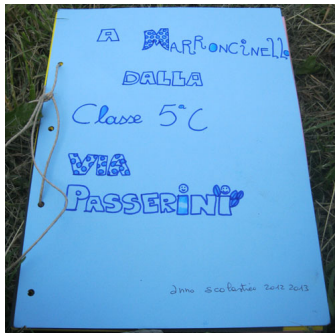 A MARRONCINELLO
DALLA
Classe 5ª C
VIA
PASSERINI
anno scolastico 2012 2013